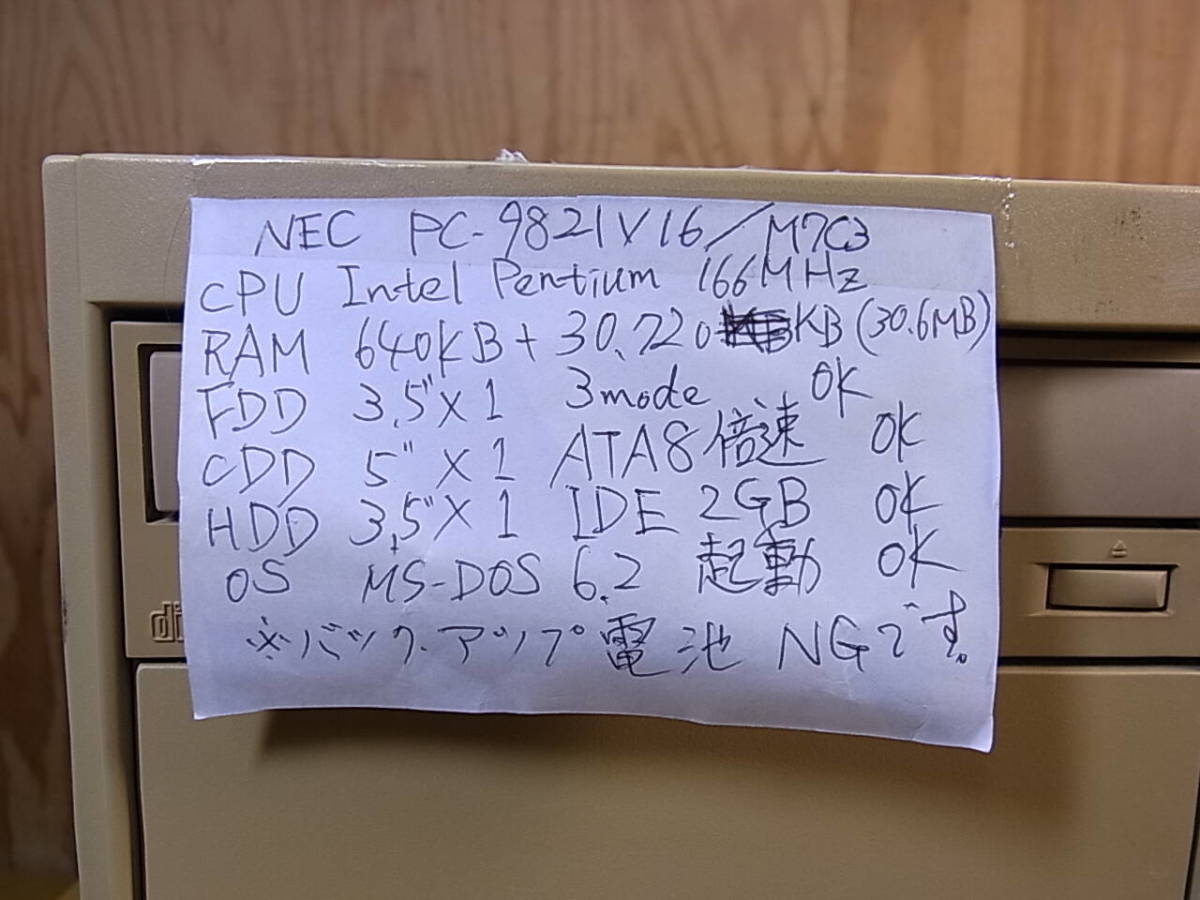 NEC PC-9821V16/M7C3
CPU Intel Pentium 166MHz
RAM 640KB+30.720KB(30.6MB)
FDD 3.5"×1 3mode OK
CDD 5"×1 ATA8倍速 OK
HDD 3.5"×1 IDE 2GB OK
OS MS-DOS 6.2 起動 OK
※バックアップ電池NGです。